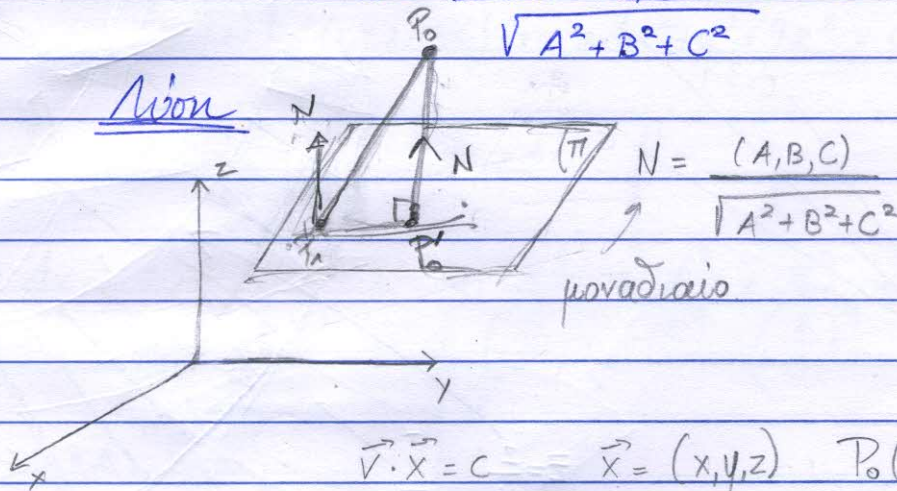 P₀
√(A²+B²+C²)
Λύση
N
z
N
(π
N = (A,B,C) / √(A²+B²+C²)
P₁
P₀'
μοναδιαίο
y
x
v⃗·x⃗ = c x⃗ = (x,y,z) P₀(